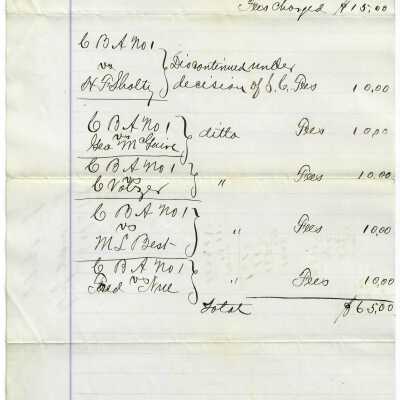 Fees charged $15.00
C B A No 1
vs
H F Sholtz
Discontinued under
decision of S. C. Fees 10.00
C B A No 1
vs
Geo McGuire
ditto Fees 10.00
C B A No 1
vs
C Votzer
" Fees 10.00
C B A No 1
vs
M L Best
" Fees 10.00
C B A No 1
vs
Fred
" Fees 10.00
Total $65.00